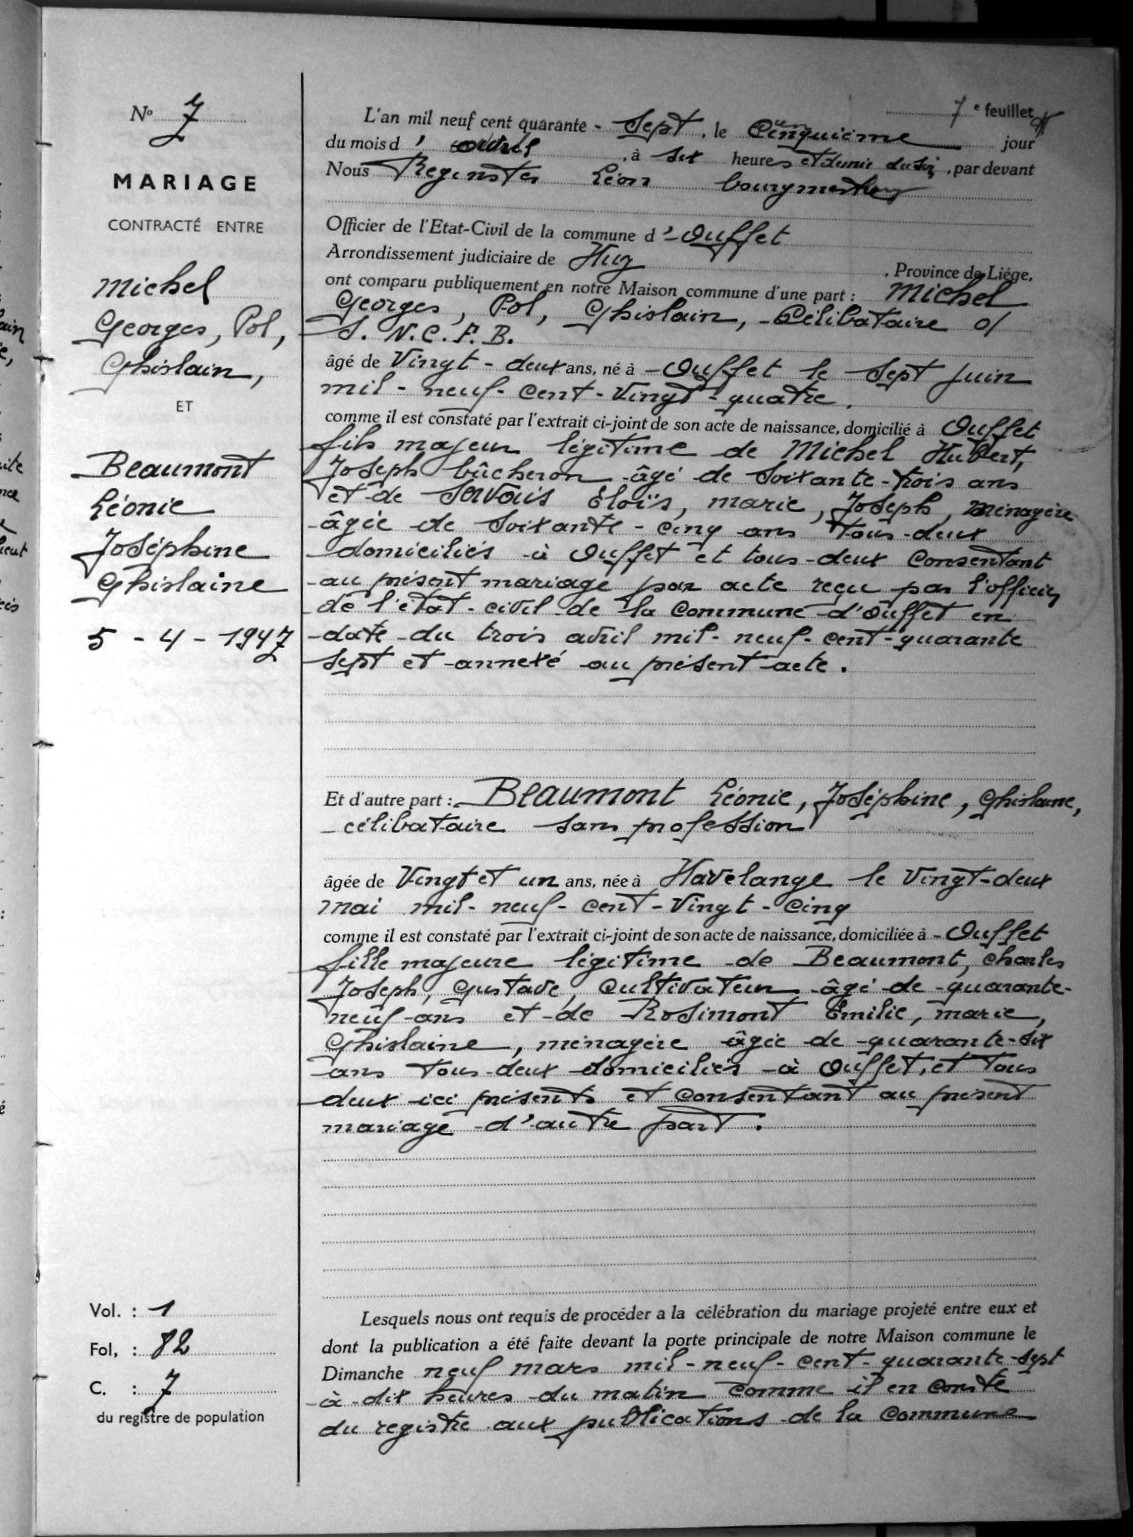 N° 7
MARIAGE
CONTRACTÉ ENTRE
Michel
Georges, Pol,
Ghislain,
ET
Beaumont
Léonie
Joséphine
Ghislaine
5 - 4 - 1947
Vol. : 1
Fol, : 82
C. : 7
du registre de population
7 e feuillet
L'an mil neuf cent quarante - Sept, le Cinquième jour
du mois d' avril, à six heures et demie du, par devant
Nous Léon bourgmestre
Officier de l'Etat-Civil de la commune d'-Ouffet
Arrondissement judiciaire de Huy, Province de Liége,
ont comparu publiquement en notre Maison commune d'une part : Michel
Georges, Pol, Ghislain, Célibataire o/
S. N. C. F. B.
âgé de Vingt - deux ans, né à - Ouffet le Sept juin
mil - neuf - cent - Vingt - quatre.
comme il est constaté par l'extrait ci-joint de son acte de naissance, domicilié à Ouffet
fils majeur légitime de Michel Hubert,
Joseph bûcheron âgé de Soixante-trois ans
et de Servais Éloïs, marie, Joseph, ménagère
âgée de Soixante - cinq ans tous deux
domiciliés à Ouffet et tous-deux Consentant
au présent mariage par acte reçu par l'officier
de l'état-civil de la Commune d'Ouffet en
date du trois avril mil-neuf-cent-quarante
sept et annexé au présent acte.
Et d'autre part : Beaumont Léonie, Joséphine, Ghislaine,
célibataire sans profession
âgée de Vingt et un ans, née à Havelange le Vingt-deux
mai mil-neuf-cent-Vingt-cinq
comme il est constaté par l'extrait ci-joint de son acte de naissance, domiciliée à - Ouffet
fille majeure légitime de Beaumont, Charles
Joseph, Gustave, Cultivateur âgé de quarante-
neuf ans et de Rosimont Émilie, marie,
Ghislaine, ménagère âgée de quarante-six
ans tous deux domiciliés à Ouffet, et tous
deux ici présents et consentant au présent
mariage d'autre part.
Lesquels nous ont requis de procéder a la célébration du mariage projeté entre eux et
dont la publication a été faite devant la porte principale de notre Maison commune le
Dimanche neuf mars mil-neuf-cent-quarante-sept
à dix heures du matin comme il en conste
du registre aux publications de la Commune